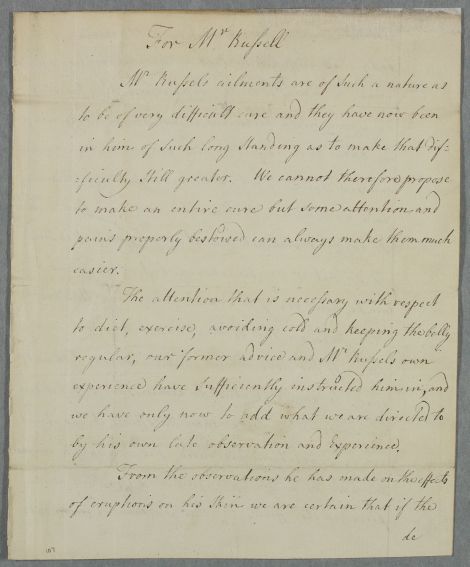 For Mr Russell
Mr Russels ailments are of such a nature as
to be of very difficult cure and they have now been
in him of such long standing as to make that dif=
=ficulty still greater. We cannot therefore propose
to make an entire cure but some attention and
pains properly bestowed can always make them much
easier.
The attention that is necessary with respect
to diet, exercise, avoiding cold and keeping the belly
regular, our former advice and Mr Russels own
experience have sufficiently instructed him in, and
we have only now to add what we are directed to
by his own late observation and Experience.
From the observations he has made on the effects
of eruptions on his skin we are certain that if the
de
107